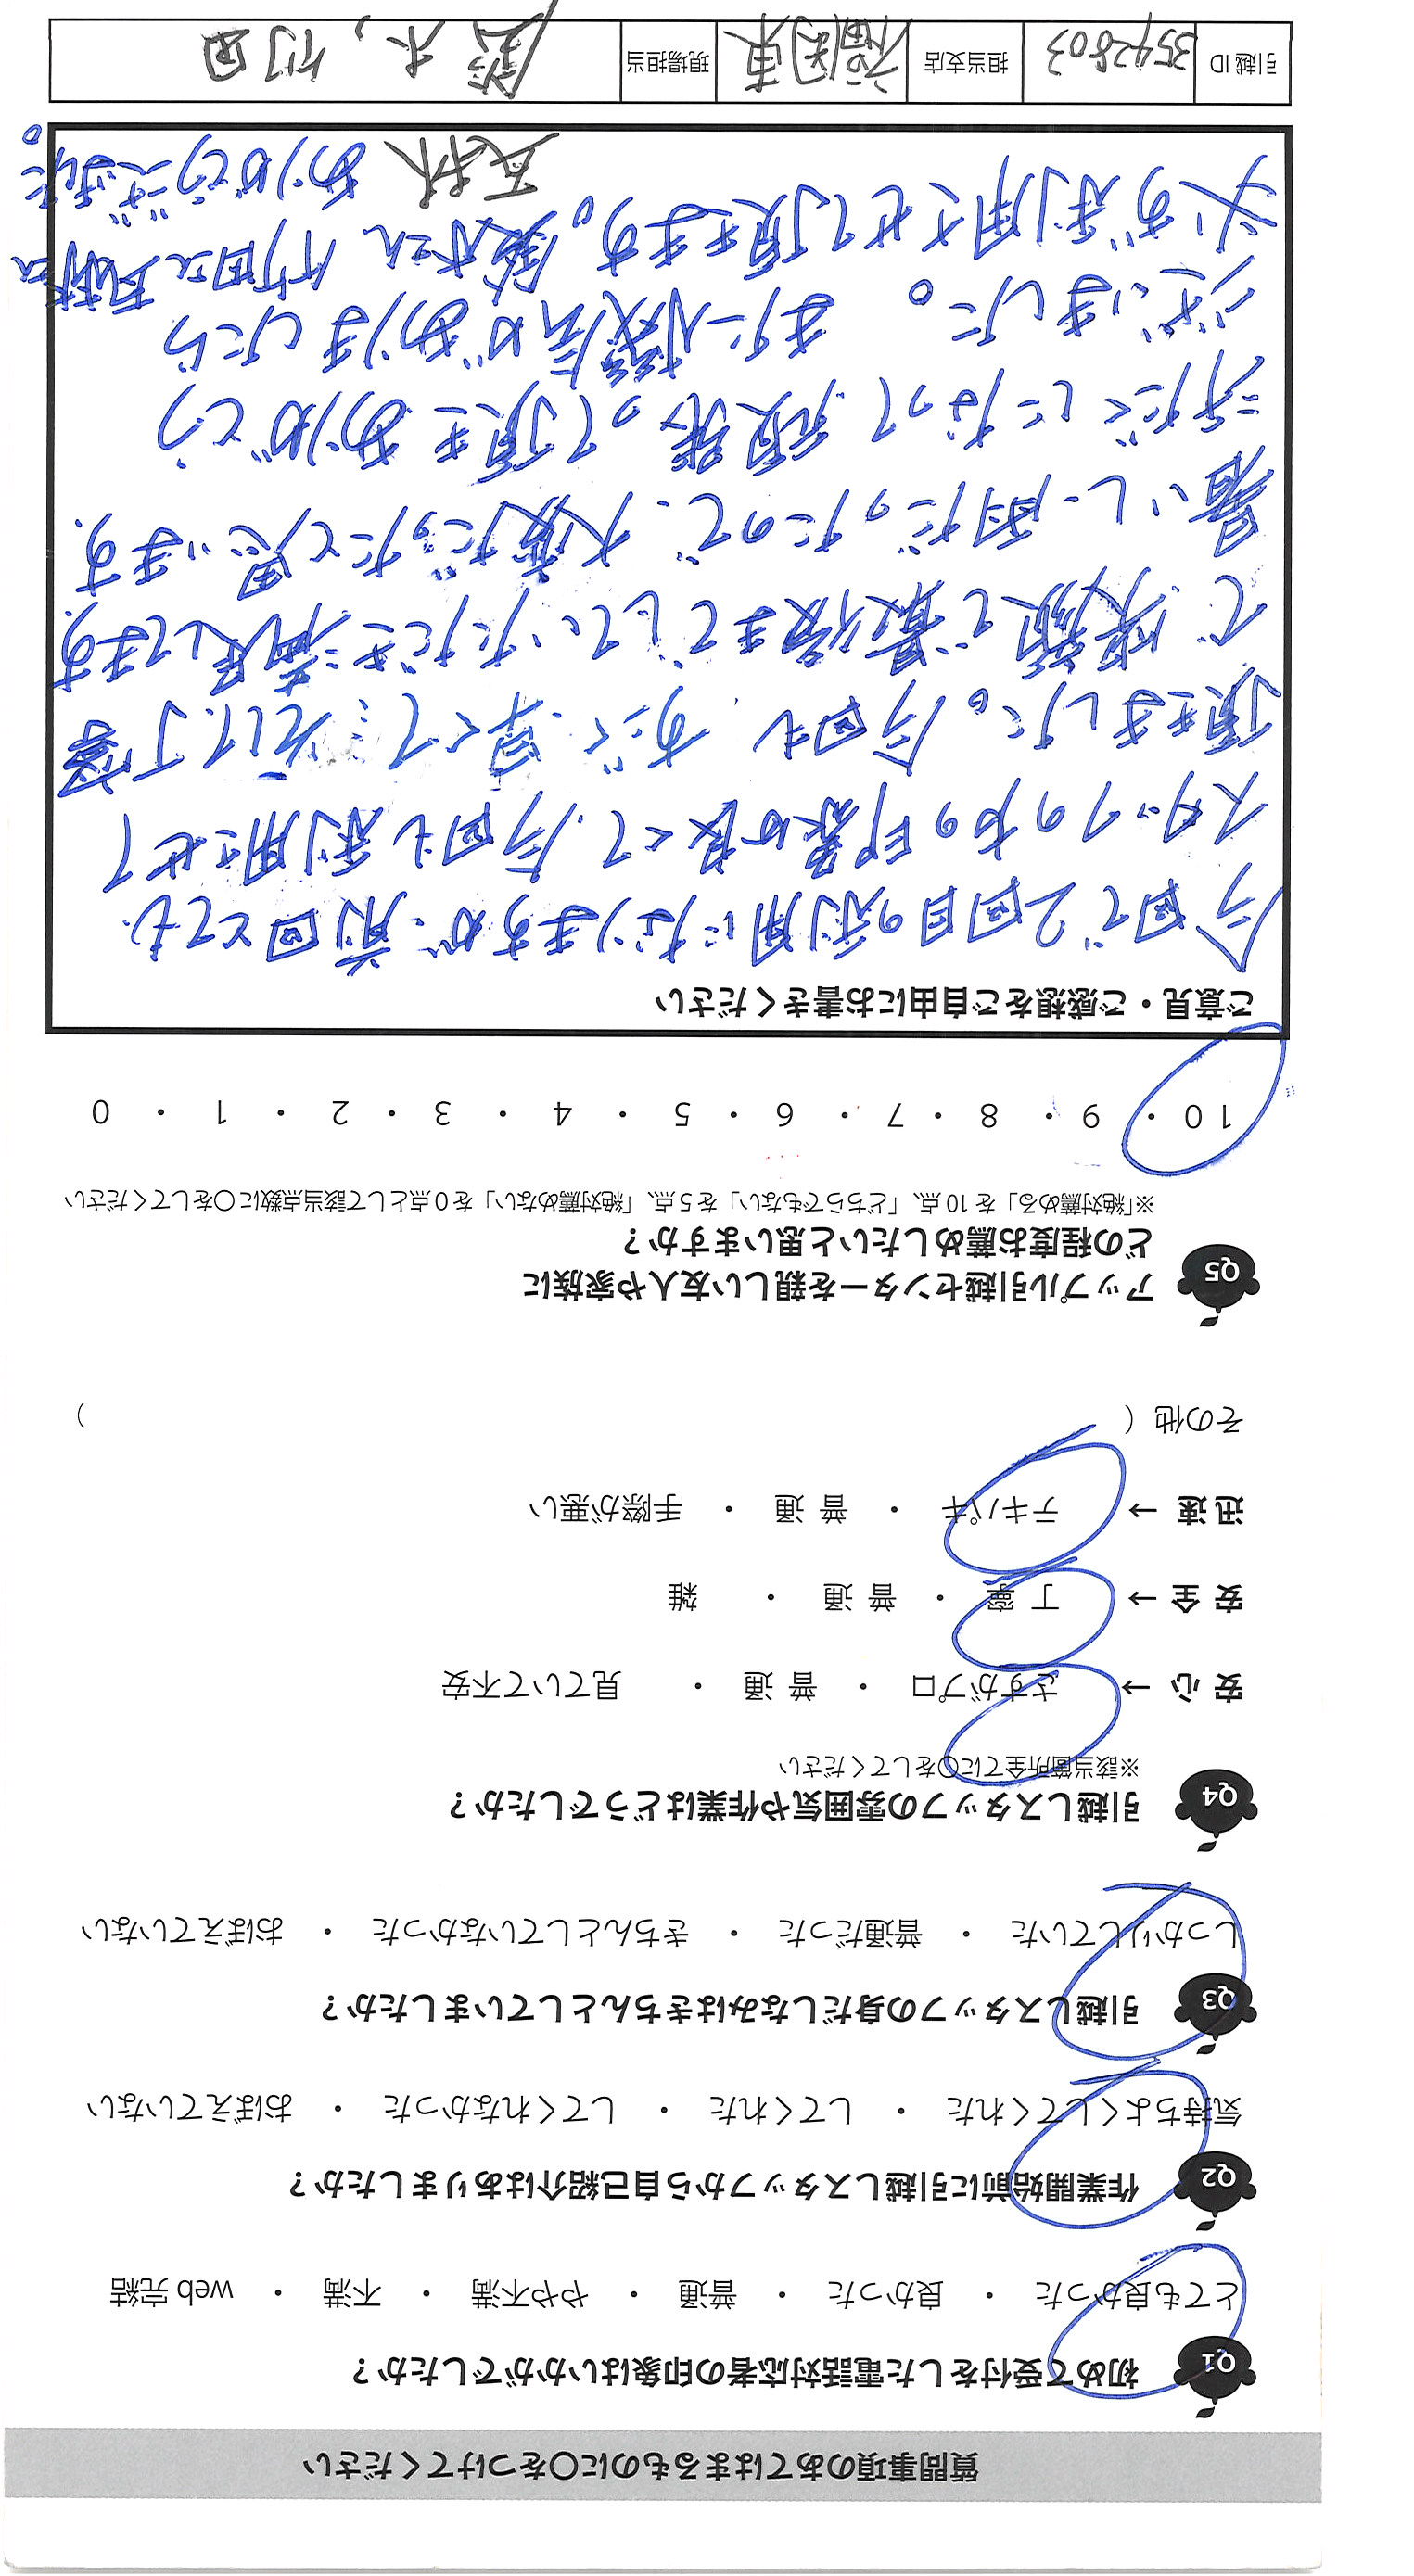 質問事項のあてはまるものに〇をつけてください
Q1 初めて受付をした電話対応者の印象はいかがでしたか？
とても良かった ・ 良かった ・ 普通 ・ やや不満 ・ 不満 ・ web 完結
Q2 作業開始前に引越しスタッフから自己紹介はありましたか？
気持ちよくしてくれた ・ してくれた ・ してくれなかった ・ おぼえていない
Q3 引越しスタッフの身だしなみはきちんとしていましたか？
しっかりしていた ・ 普通だった ・ きちんとしていなかった ・ おぼえていない
Q4 引越しスタッフの雰囲気や作業はどうでしたか？
※該当箇所全てに〇をしてください
安 心 → さすがプロ ・ 普 通 ・ 見ていて不安
安 全 → 丁 寧 ・ 普 通 ・ 雑
迅 速 → テキパキ ・ 普 通 ・ 手際が悪い
その他（ ）
Q5 アップル引越センターを親しい友人や家族に
どの程度お薦めしたいと思いますか？
※「絶対薦める」を 10 点、「どちらでもない」を 5 点、「絶対薦めない」を 0 点として該当点数に〇をしてください
10 ・ 9 ・ 8 ・ 7 ・ 6 ・ 5 ・ 4 ・ 3 ・ 2 ・ 1 ・ 0
ご意見・ご感想をご自由にお書きください
今回で2回目の利用になりますが、前回とても
スタッフの方の印象が良くて、今回も利用させて
頂きました。今回も、すごく、早くて… 丁寧
で、笑顔で最後までしていただき満足してます。
暑いし、雨だったので、大変だったと思います。
汗だくになって頑張って頂き ありがとう
ございました。 また機会がありましたら
必ず利用させて頂きます。鈴木さん 竹田さん
ありがとうございました。
引越 ID 3542803 担当支店 福岡東 現場担当 鈴木, 竹田